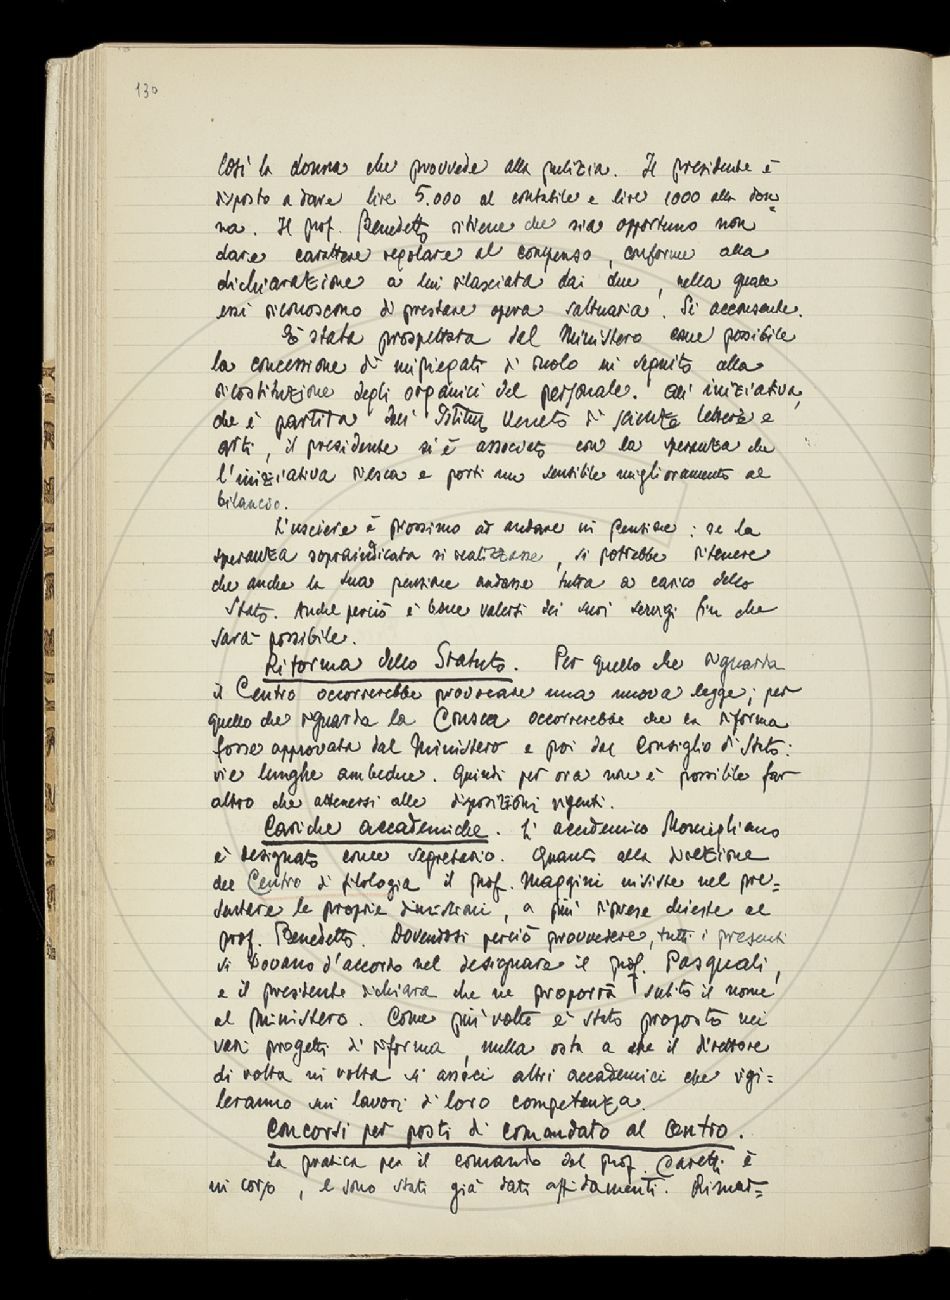 130
Così la donna che provvede alla pulizia. Il presidente è
disposto a dare lire 5.000 al contabile e lire 1000 alla don=
na. Il prof. Benedetto ritiene che sia opportuno non
dare carattere regolare al compenso, conforme alla
dichiarazione a lui rilasciata dai due, nella quale
essi riconoscono di prestare opera saltuaria. Si acconsente.
È stata prospettata dal Ministero come possibile
la concessione di impiegati di ruolo in seguito alla
ricostituzione degli organici del personale. All'iniziativa,
che è partita dall'Istituto Veneto di scienze lettere e
arti, il presidente si è associato con la speranza che
l'iniziativa riesca e porti un sensibile miglioramento al
bilancio.
L'usciere è prossimo ad andare in pensione: se la
speranza sopraindicata si realizzasse, si potrebbe ritenere
che anche la sua pensione andasse tutta a carico dello
Stato. Anche perciò è bene valersi dei suoi servigi fin che
sarà possibile.
Riforma dello Statuto. Per quello che riguarda
il Centro occorrerebbe provocare una nuova legge; per
quello che riguarda la Crusca occorrerebbe che la riforma
fosse approvata dal Ministero e poi dal Consiglio di Stato:
vie lunghe ambedue. Quindi per ora non è possibile far
altro che attenersi alle disposizioni vigenti.
Cariche accademiche. L'accademico Momigliano
è designato come segretario. Quanto alla direzione
del Centro di filologia il prof. Maggini insiste nel pre=
sentare le proprie dimissioni, a più riprese chieste al
prof. Benedetto. Dovendosi perciò provvedere, tutti i presenti
si trovano d'accordo nel designare il prof. Pasquali,
e il presidente dichiara che ne proporrà subito il nome
al Ministero. Come più volte è stato proposto nei
vari progetti di riforma, nulla osta a che il direttore
di volta in volta si associ altri accademici che vigi=
leranno sui lavori di loro competenza.
Concorsi per posti di comandato al Centro.
La pratica per il comando del prof. Caretti è
in corso, e sono stati già dati affidamenti.